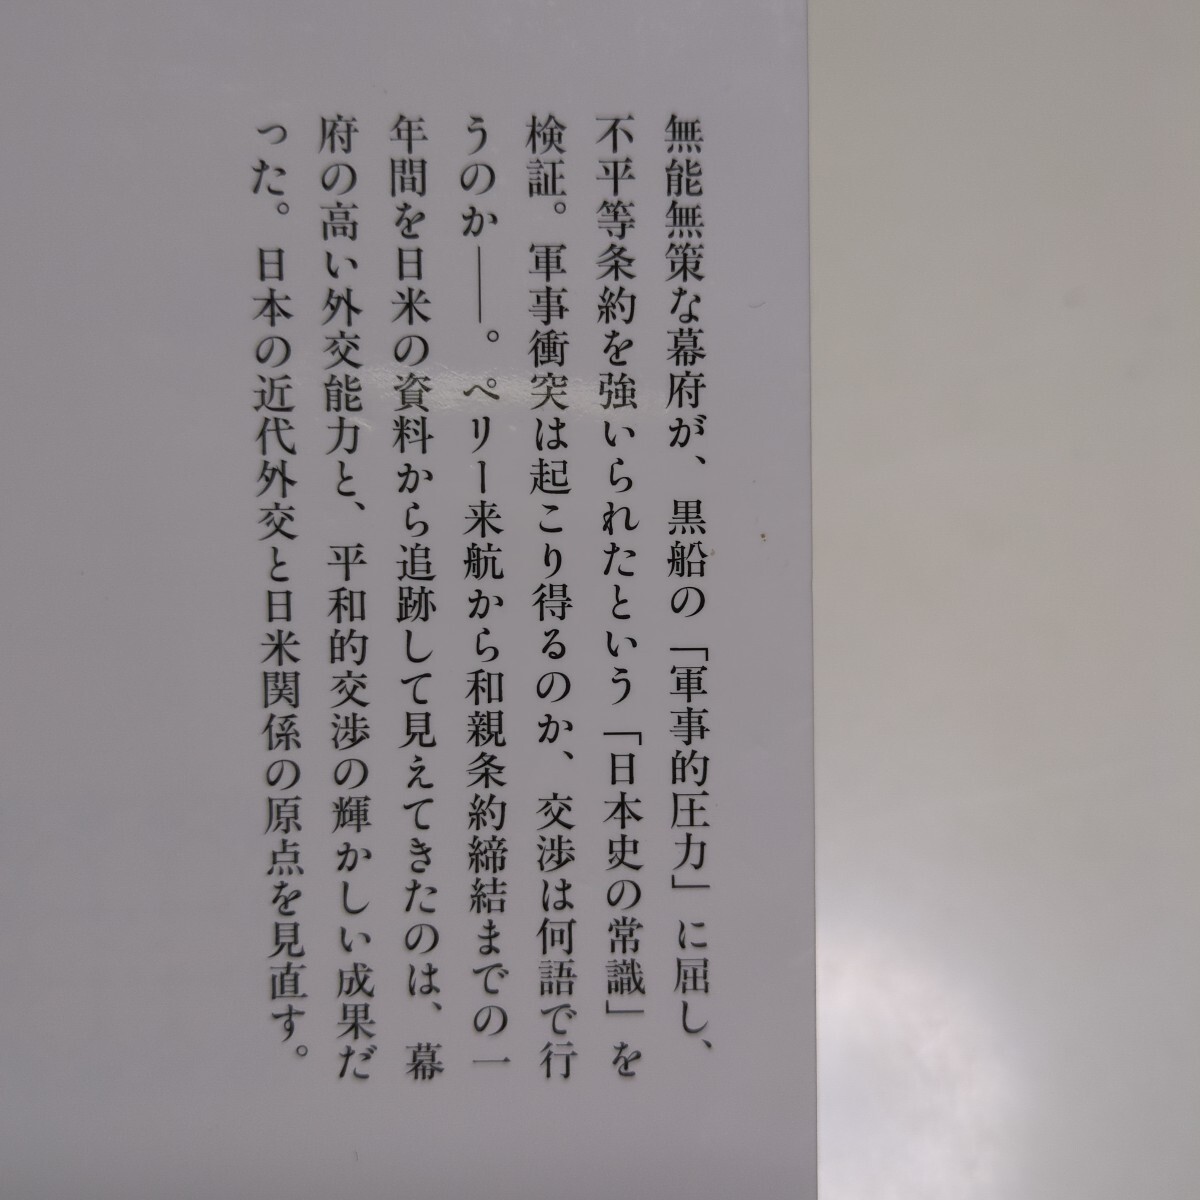 無能無策な幕府が、黒船の「軍事的圧力」に屈し、
不平等条約を強いられたという「日本史の常識」を
検証。軍事衝突は起こり得るのか、交渉は何語で行
うのか――。ペリー来航から和親条約締結までの一
年間を日米の資料から追跡して見えてきたのは、幕
府の高い外交能力と、平和的交渉の輝かしい成果だ
った。日本の近代外交と日米関係の原点を見直す。